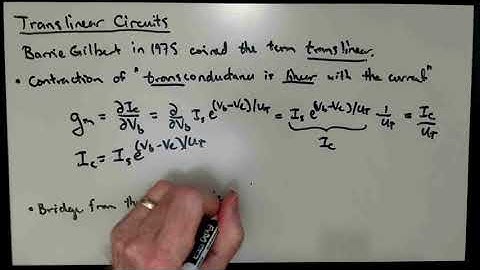 Translinear Circuits
Barrie Gilbert in 1975 coined the term translinear.
• Contraction of "transconductance is linear with the current"
g_m = ∂I_c/∂V_b = ∂/∂V_b I_s e^{(V_b-V_e)/U_T} = I_s e^{(V_b-V_e)/U_T} 1/U_T = I_c/U_T
I_c
I_c = I_s e^{(V_b-V_e)/U_T}
• Bridge from the